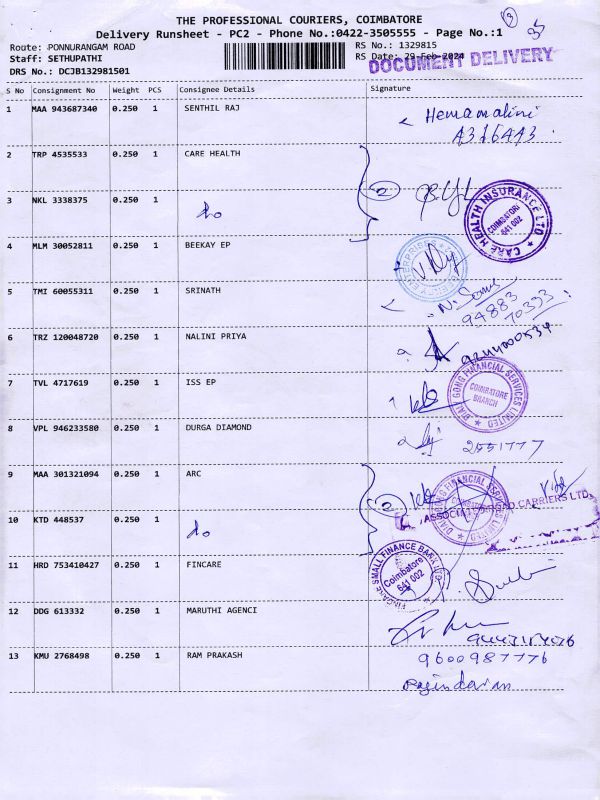 THE PROFESSIONAL COURIERS, COIMBATORE
Delivery Runsheet - PC2 - Phone No.:0422-3505555 - Page No.:1
Route: PONNURANGAM ROAD
RS No.: 1329815
Staff: SETHUPATHI
RS Date: 29-Feb-2024
DOCUMENT DELIVERY
DRS No.: DCJB132981501
S No Consignment No Weight PCS Consignee Details Signature
1 MAA 943687340 0.250 1 SENTHIL RAJ
Hemamalini
2 TRP 4535533 0.250 1 CARE HEALTH
2
3 NKL 3338375 0.250 1
CARE HEALTH INSURANCE LTD
COIMBATORE
641 002
4 MLM 30052811 0.250 1 BEEKAY EP
5 TMI 60055311 0.250 1 SRINATH
94883
70393
6 TRZ 120048720 0.250 1 NALINI PRIYA
7 TVL 4717619 0.250 1 ISS EP
FINANCIAL SERVICES LIMITED
COIMBATORE
BRANCH
8 VPL 946233580 0.250 1 DURGA DIAMOND
2551777
9 MAA 301321094 0.250 1 ARC
2
ASSOCIATED ROAD CARRIERS LTD.
10 KTD 448537 0.250 1
11 HRD 753410427 0.250 1 FINCARE
FINCARE SMALL FINANCE BANK LTD
Coimbatore
641 002
12 DDG 613332 0.250 1 MARUTHI AGENCI
13 KMU 2768498 0.250 1 RAM PRAKASH
9600987776